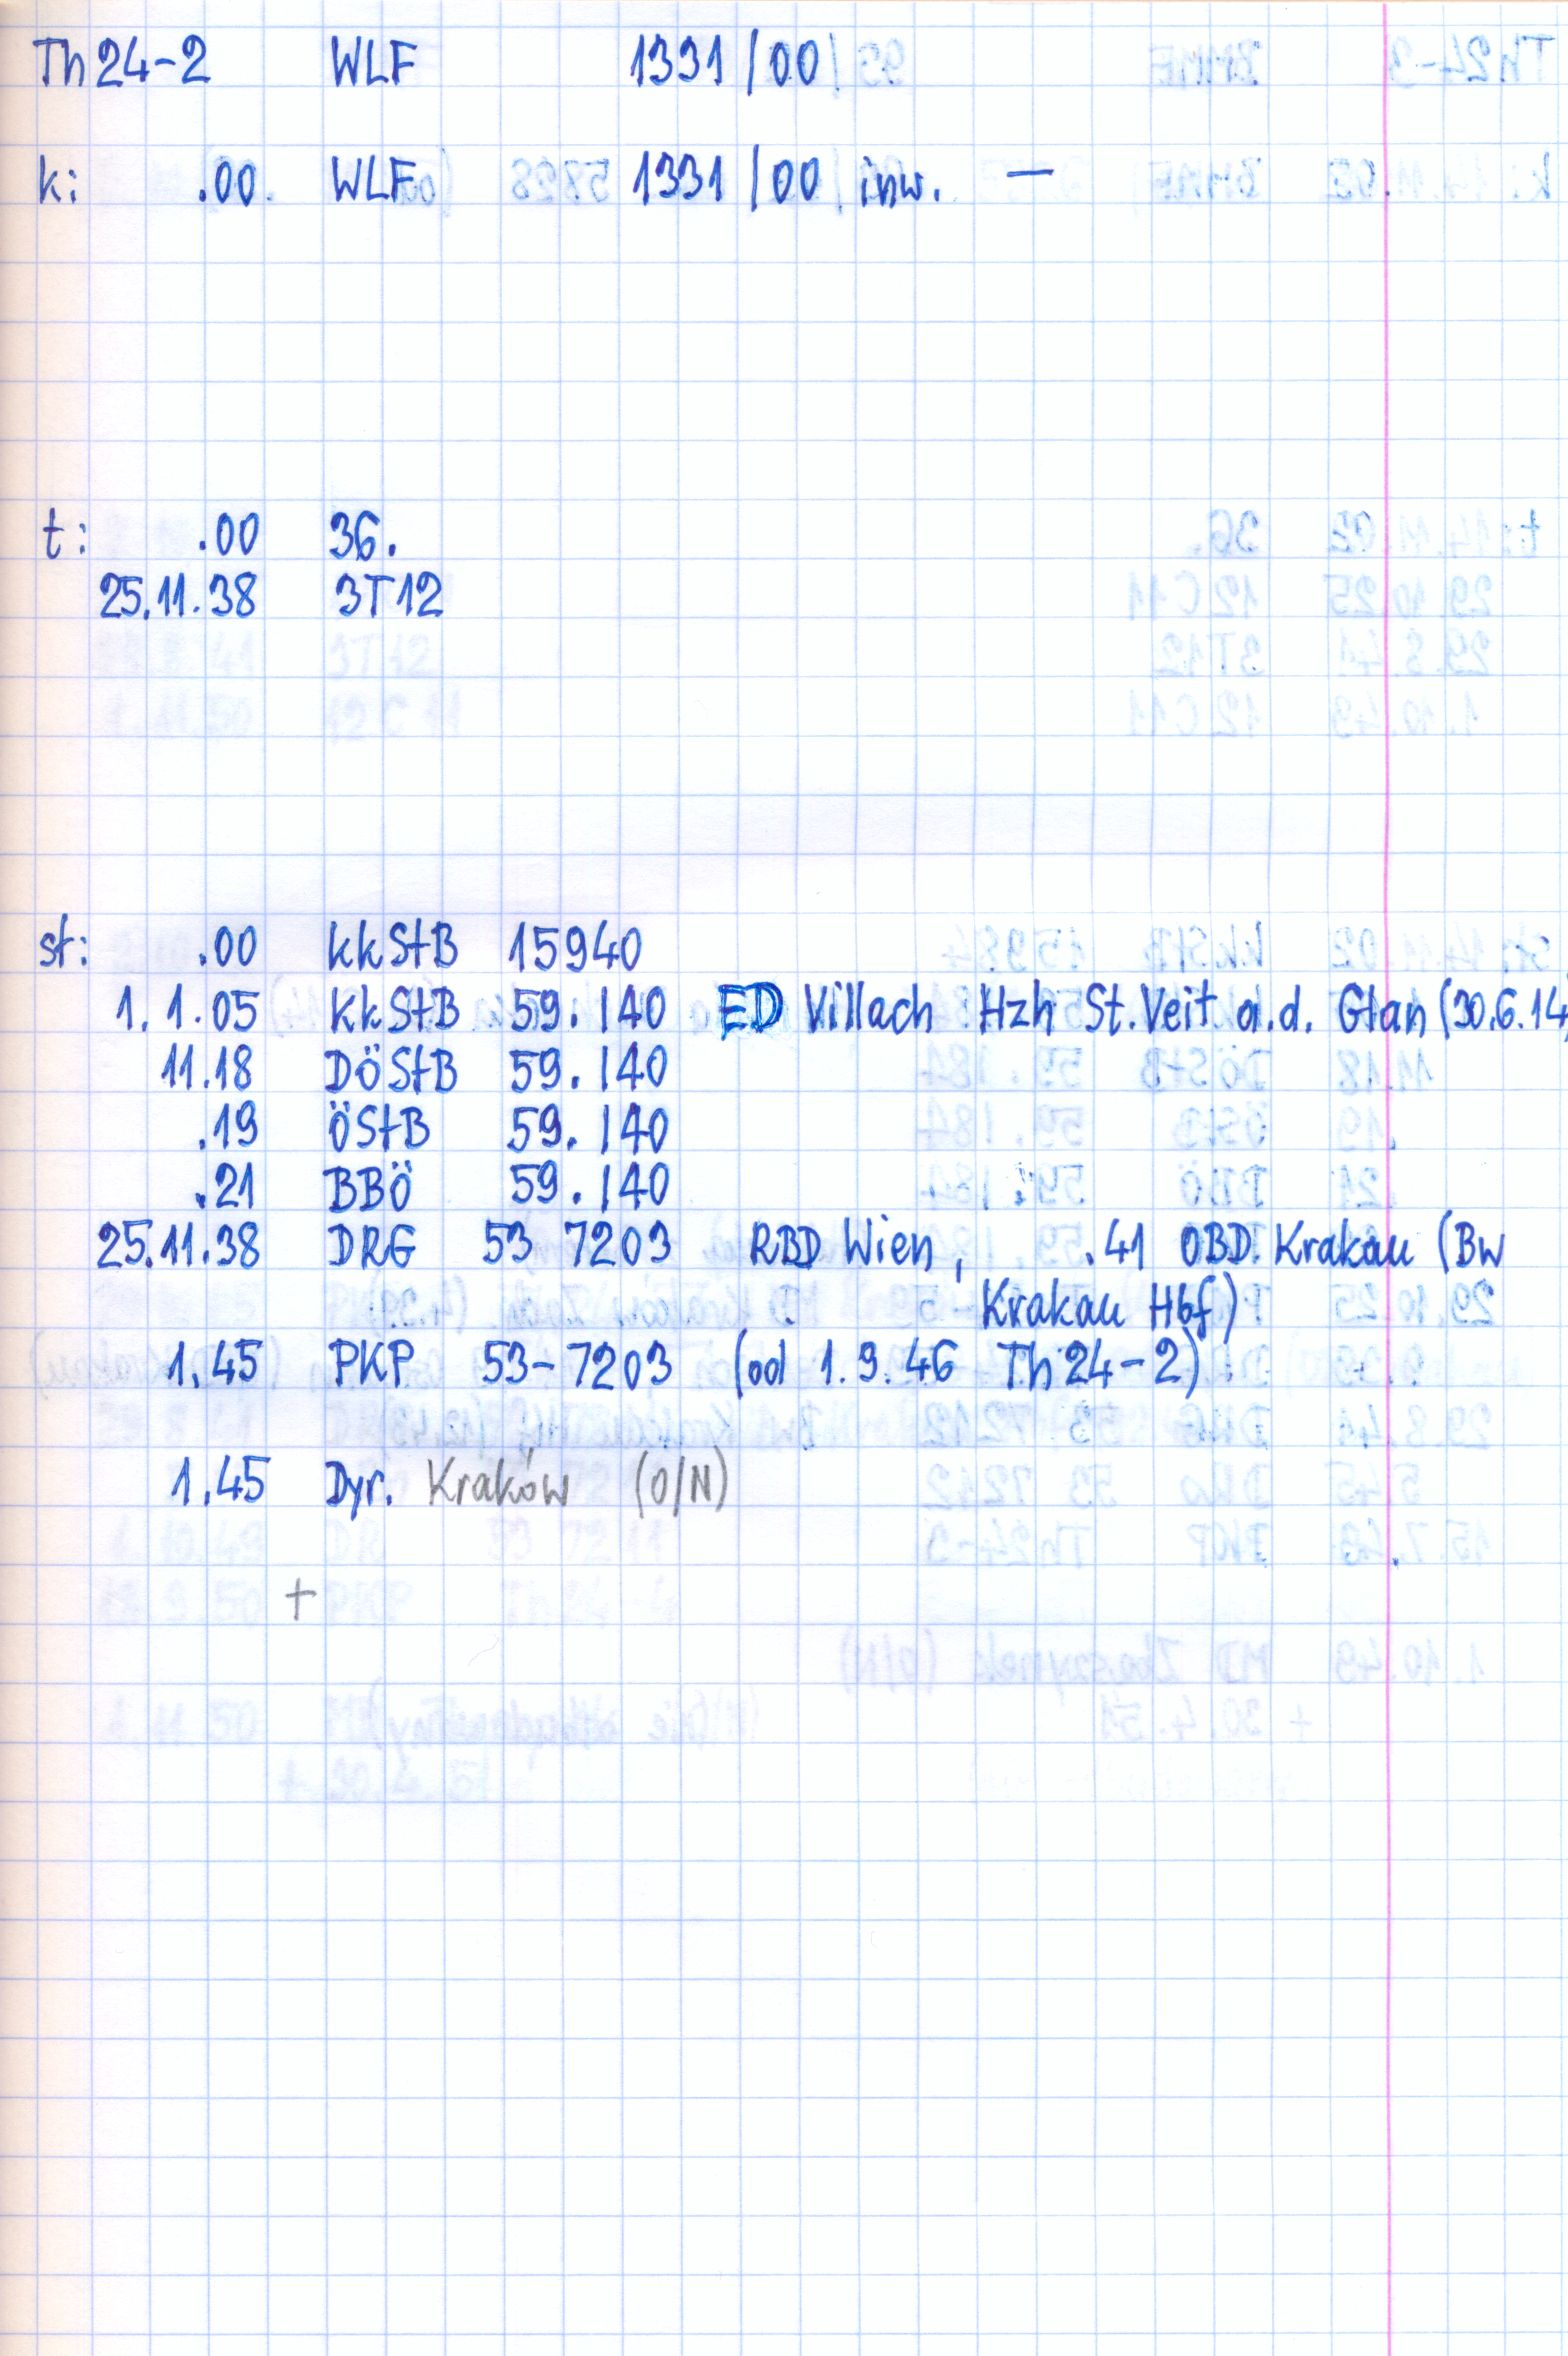 Th24-2 WLF 1331/00
k: .00 WLF 1331/00 inw. —
t: .00 36.
25.11.38 3T12
st: .00 kkStB 15940
1.1.05 kkStB 59.140 ED Villach Hzh St.Veit a.d. Glan (30.6.14)
11.18 DÖStB 59.140
.19 ÖStB 59.140
.21 BBÖ 59.140
25.11.38 DRG 53 7203 RBD Wien, .41 OBD Krakau (Bw
Krakau Hbf)
1.45 PKP 53-7203 (od 1.9.46 Th24-2)
1.45 Dyr. Kraków (O/N)
+